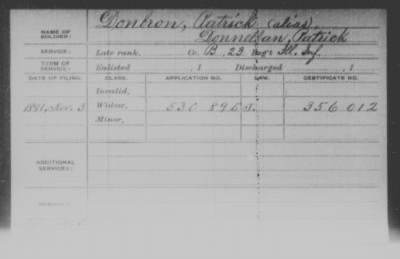 Dontron, Patrick (alias)
NAME OF SOLDIER: Donnellan, Patrick
SERVICE: Late rank, Co. B, 23 Reg't Ill. Inf.
TERM OF SERVICE: Enlisted , 1 Discharged , 1
DATE OF FILING. CLASS. APPLICATION NO. LAW. CERTIFICATE NO.
Invalid,
1891, Nov. 3 Widow, 530 895 356 012
Minor,
ADDITIONAL SERVICES:
REMARKS: